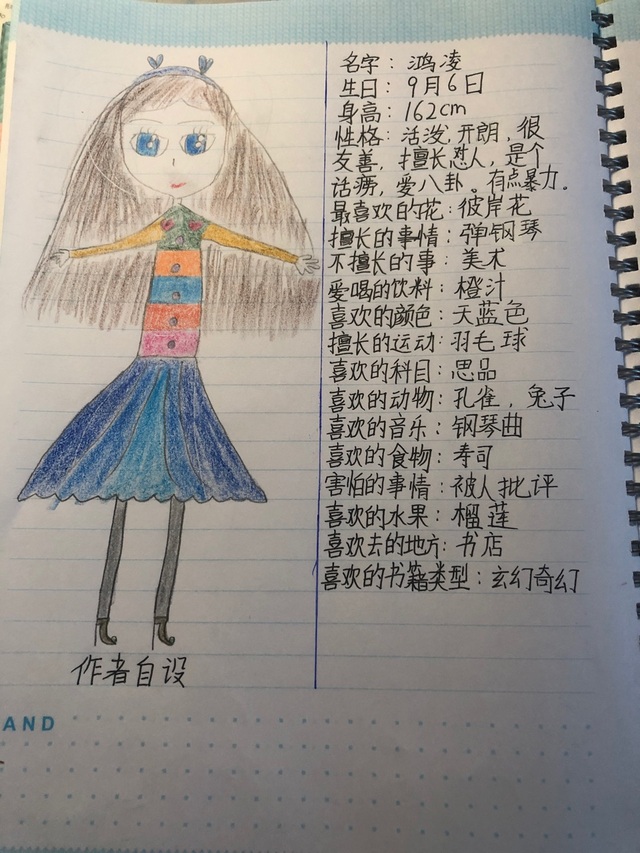 名字：鸿凌
生日：9月6日
身高：162cm
性格：活泼,开朗，很
友善，擅长怼人，是个
话痨，爱八卦。有点暴力。
最喜欢的花：彼岸花
擅长的事情：弹钢琴
不擅长的事：美术
爱喝的饮料：橙汁
喜欢的颜色：天蓝色
擅长的运动：羽毛球
喜欢的科目：思品
喜欢的动物：孔雀，兔子
喜欢的音乐：钢琴曲
喜欢的食物：寿司
害怕的事情：被人批评
喜欢的水果：榴莲
喜欢去的地方：书店
喜欢的书籍类型：玄幻奇幻
作者自设
AND